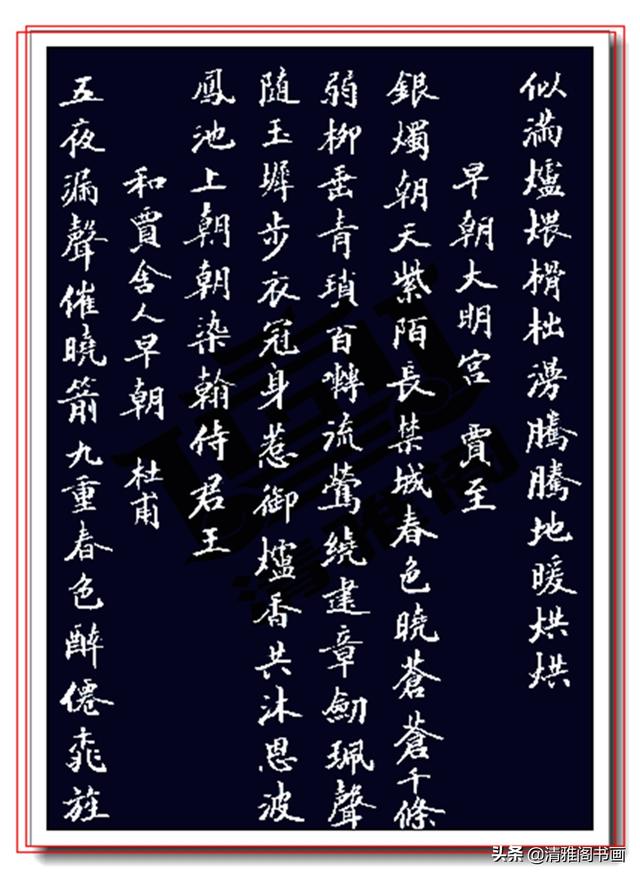 似滿爐煨榾柮漫騰騰地暖烘烘
早朝大明宮 賈至
銀燭朝天紫陌長禁城春色曉蒼蒼千條
弱柳垂青瑣百囀流鶯繞建章劍珮聲
隨玉墀步衣冠身惹御爐香共沐恩波
鳳池上朝朝染翰侍君王
和賈舍人早朝 杜甫
五夜漏聲催曉箭九重春色醉僊桃旌
清雅阁
头条 @清雅阁书画